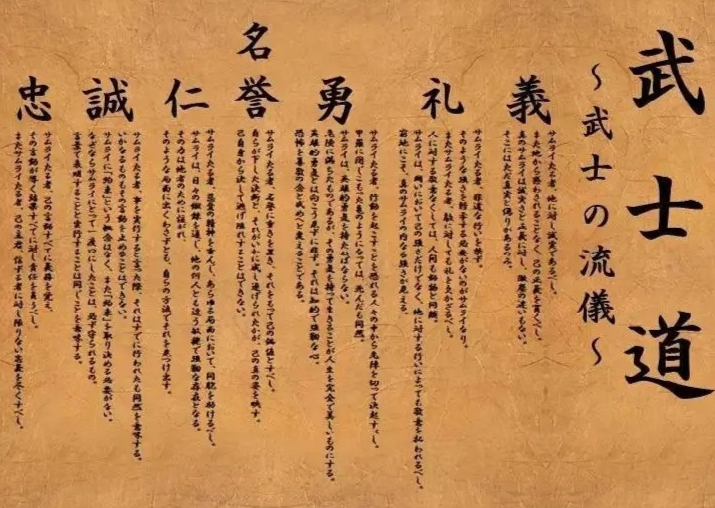 武士道
～武士の流儀～
義
サムライたる者、他に対し誠実であるべし。
また他から惑わされることなく、己の正義を貫くべし。
真のサムライは誠実さと正義に対し、微塵の迷いもない。
そこにはただ真実と偽りがあるのみ。
礼
サムライたる者、非道な行いを恥ず。
そのような強さを誇示する必要がないのがサムライなり。
またサムライたる者、敵に対しても礼を欠かざるべし。
人に対する敬意なくしては、人間も獣物と同類。
サムライは、闘いにおいて己の強さだけでなく、他に対する行いによっても敬意を払われるべし。
窮地にこそ、真のサムライの内なる強さが見える。
勇
サムライたる者、行動を起こすことを恐れる人々の中から危険を切って決起すべし。
甲羅に閉じこもった亀のようになっては、死んだも同然。
サムライは、英雄的勇気を持たねばならない。
危険に満ちたものであるが、その勇気を持って生きることが人生を完全で美しいものにする。
英雄的勇気とは向こう見ずに非ず。それは知的で強靭な心。
恐怖を尊敬の念と戒めへと変えることである。
名誉
サムライたる者、名誉に重きを置き、それをもって己の価値とすべし。
自らが下した決断と、それがいかに成し遂げられたかが、己の真の姿を映す。
己自身から決して逃げ隠れすることはできない。
仁
サムライたる者、慈愛の精神を育み、あらゆる局面において、同胞を助けるべし。
サムライは、日々の鍛錬を通し、他の何人とも違う敏捷で強靭な存在となる。
その力は他者のために注がれ、
そのような局面に出くわさずとも、自らの方法でそれを見つけ出す。
誠
サムライたる者、事を実行すると言った際、それはすでに行われたも同然を意味する。
いかなるものもその言動を止めることはできない。
サムライに「約束」という概念はなく、また「約束」を取り決める必要がない。
なぜならサムライにとって一度口にしたことは、必ず守られるもの。
言葉で表現することと実行することは同じことを意味する。
忠
サムライたる者、己の言動すべてに義務を覚え、
その言動が導く結果すべてに対し責任を負うべし。
またサムライたる者、己の主君、信ずる者に対し限りない忠義を尽くすべし。